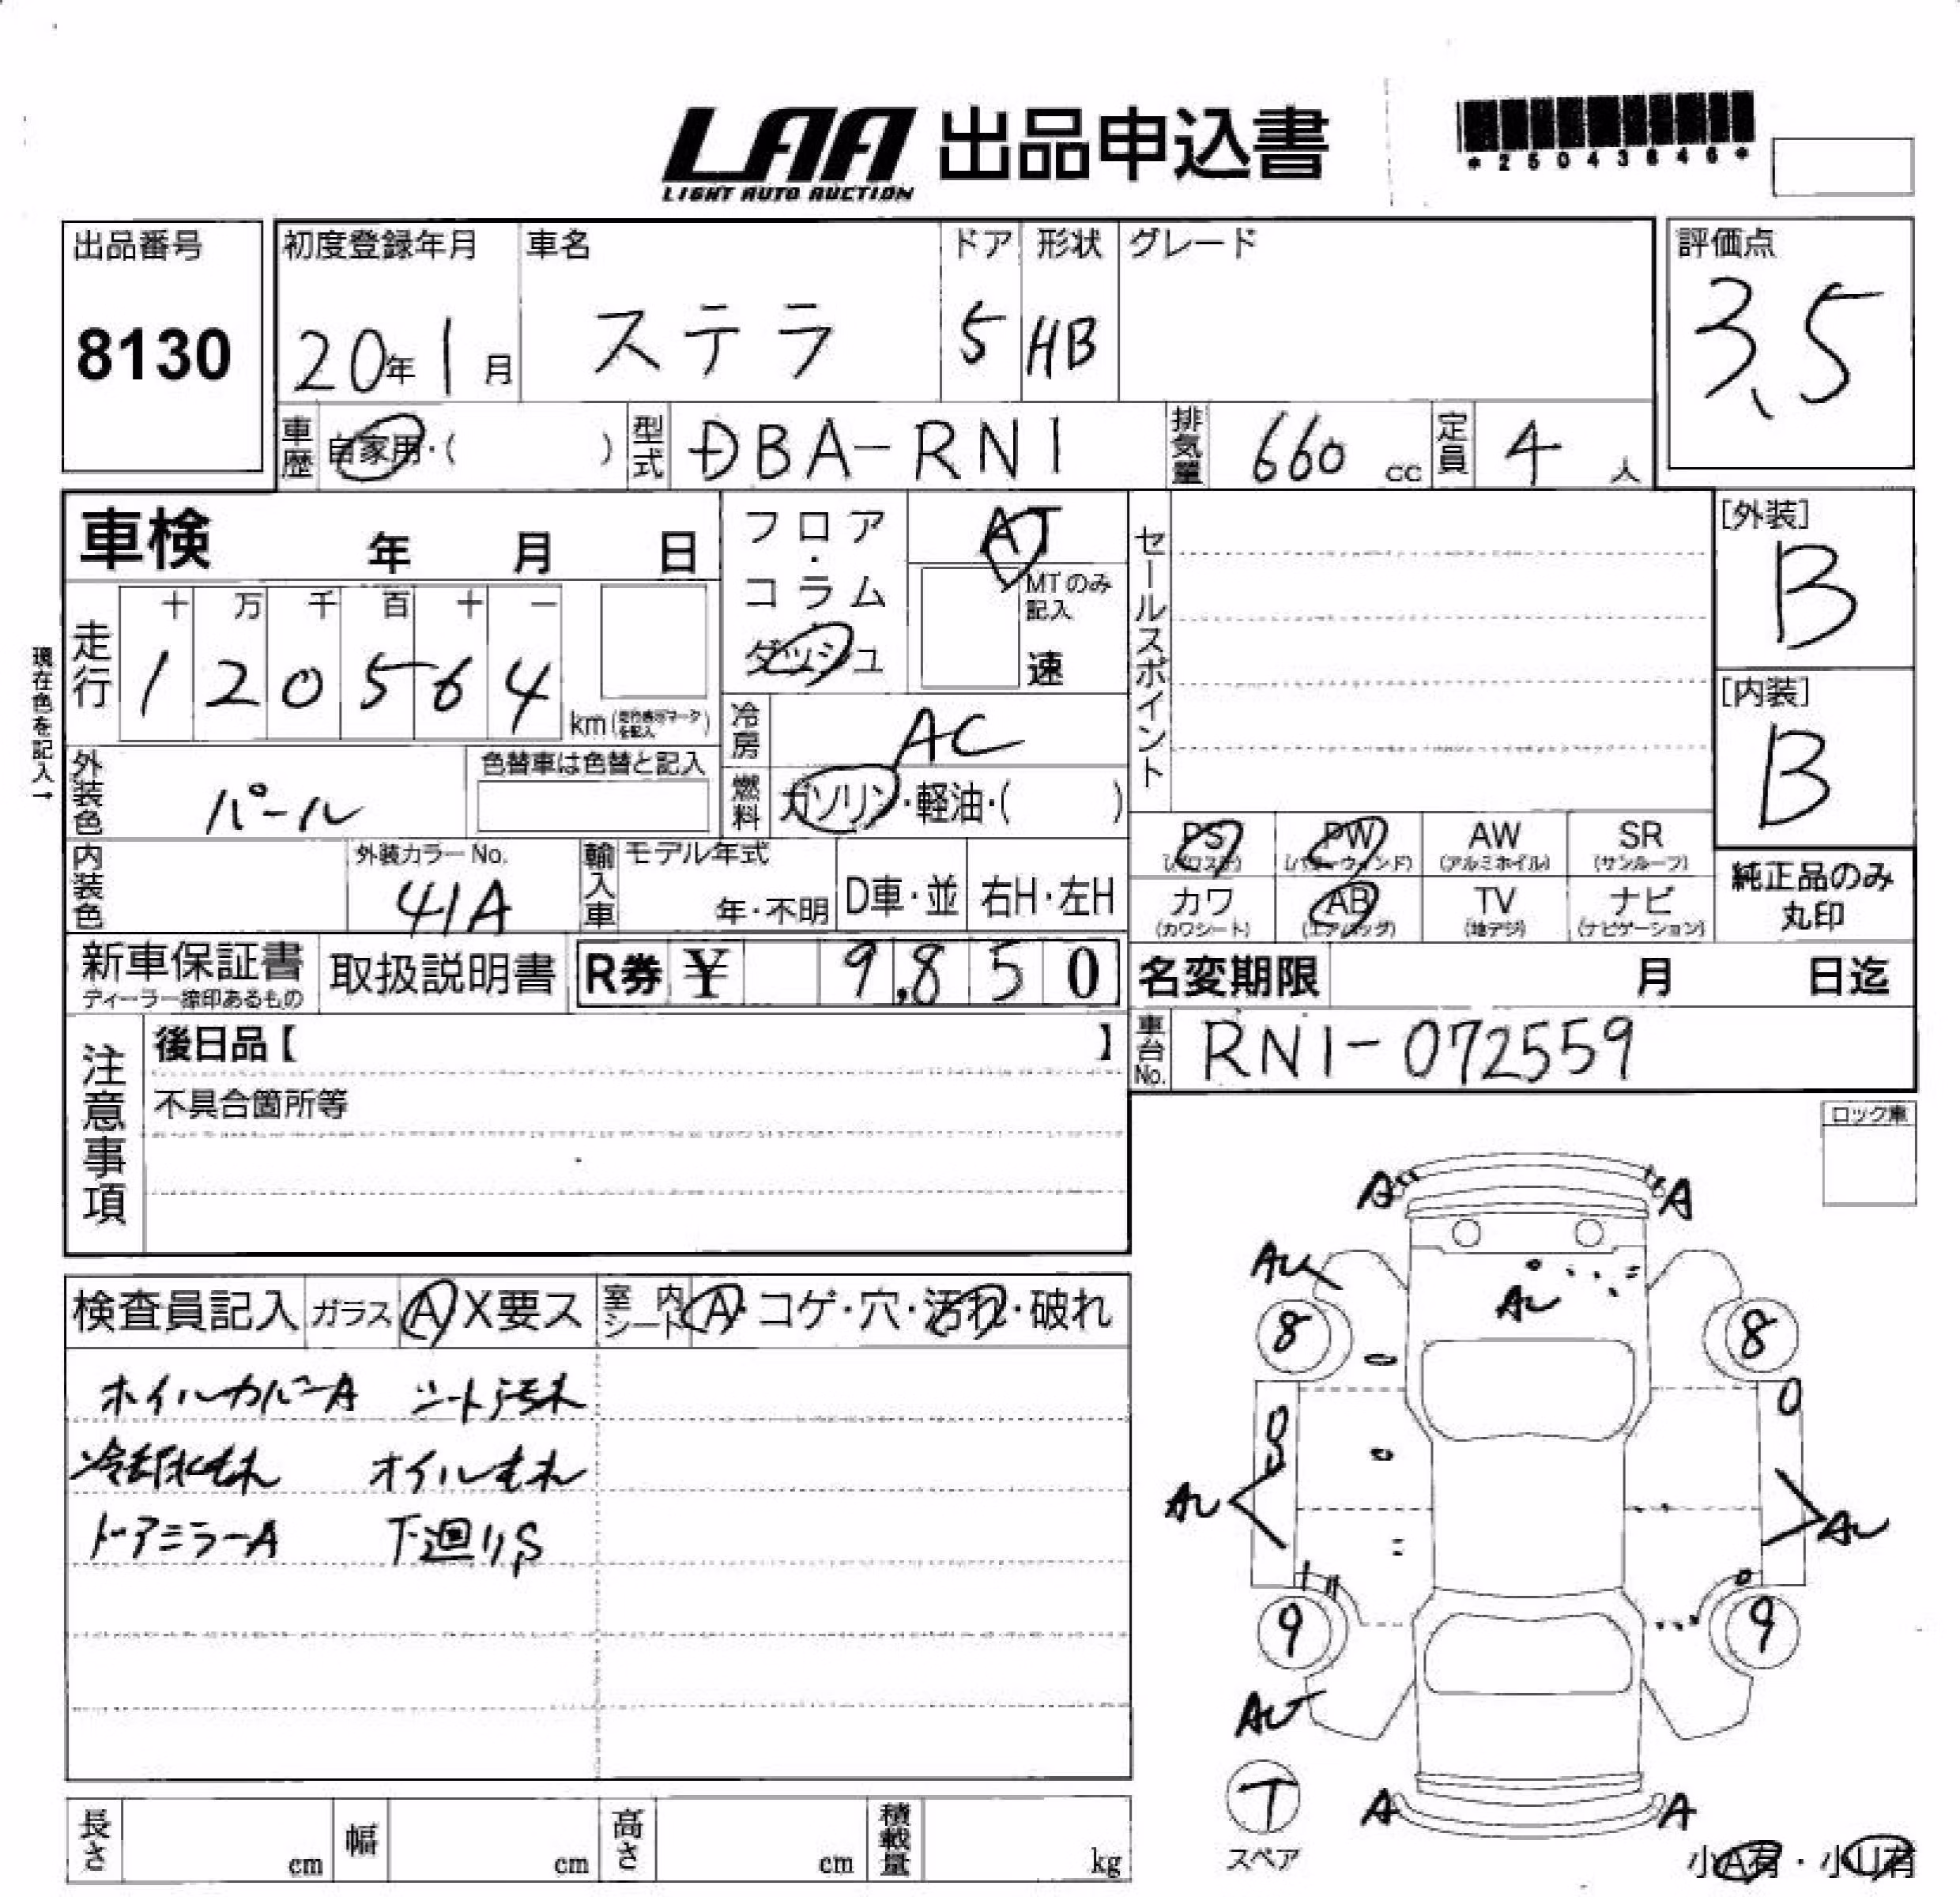 LAA 出品申込書
LIGHT AUTO AUCTION
*25043646*
出品番号
8130
初度登録年月
20年1月
車名
ステラ
ドア
5
形状
HB
グレード
評価点
3.5
車歴
自家用・( )
型式
DBA-RN1
排気量
660 cc
定員
4 人
車検 年 月 日
フロア・コラム
ダッシュ
AT
MTのみ記入
速
セールスポイント
[外装]
B
[内装]
B
現在色を記入→
走行
十 万 千 百 十 一
1 2 0 5 6 4
km(走行表示マークを記入)
冷房
AC
外装色
パール
色替車は色替と記入
燃料
ガソリン・軽油・( )
PS
PW
(パワーウィンド)
AW
(アルミホイル)
SR
(サンルーフ)
カワ
(カワシート)
AB
(エアバッグ)
TV
(地デジ)
ナビ
(ナビゲーション)
純正品のみ
丸印
内装色
外装カラーNo.
41A
輸入車
モデル年式
年・不明
D車・並
右H・左H
新車保証書
ディーラー捺印あるもの
取扱説明書
R券 ¥ 9,850
名変期限 月 日迄
車台No.
RN1-072559
注意事項
後日品【 】
不具合箇所等
ロック車
検査員記入
ガラス
A X要ス
室内シート
A・コゲ・穴・汚れ・破れ
ホイルカバーA シート汚れ
冷却水もれ オイルもれ
ドアミラーA 下廻りS
A A
AU
AU
8 8
AU AU
9 9
AU
T
スペア
A A
小A有・小U有
長さ cm
幅 cm
高さ cm
積載量 kg